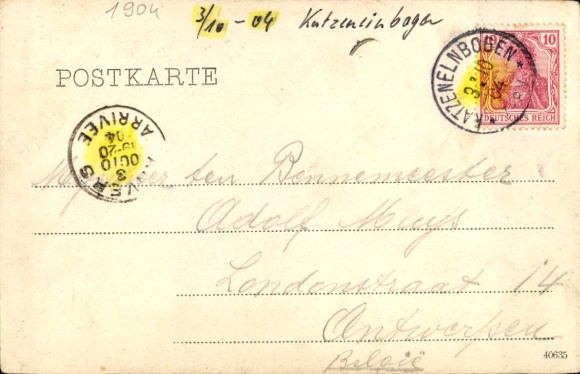 1904
3/10 - 04 Katzeneinboger
POSTKARTE
KATZENELNBOGEN
3.10
04
10
DEUTSCHES REICH
ANVERS
ARRIVEE
04
19-20
OCTO
3
ter ten Bennemeester
Adolf Muys
Londonstraat 14
Antwerpen
België
40635